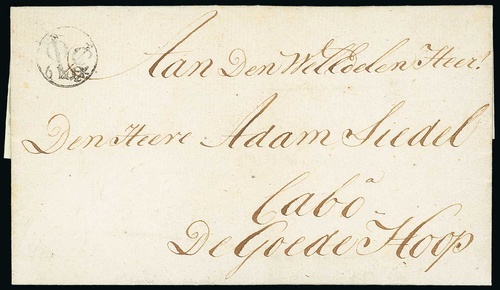 Aan Den WelEdelen Heer!
Den Heere Adam Siedel
a Cabo
De Goede Hoop